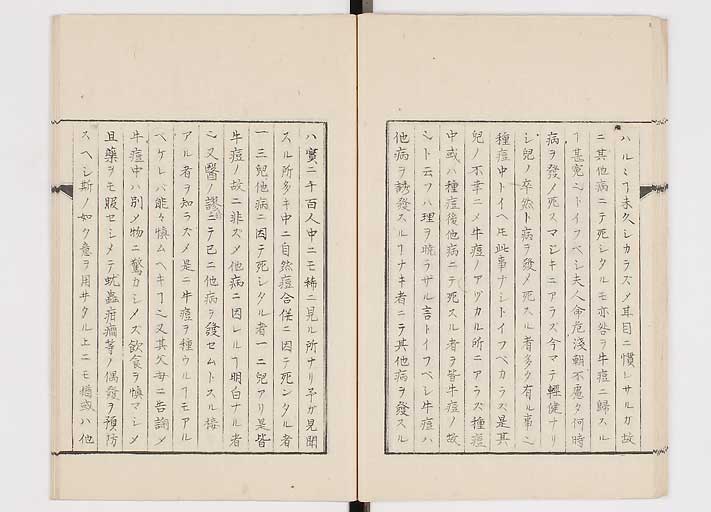 ハルヿ未久シカラズメ耳目ニ慣レサルガ故
ニ其他病ニテ死シタルモ亦咎ヲ牛痘ニ歸スル
ヿ甚寃シトイフベシ夫人命危淺朝不慮夕何時
病ヲ發メ死スマジキニアラズ今マテ輕健ナリ
シ兒ノ卒然ト病ヲ發メ死スル者多ク有ル事也
種痘中トイヘモ此事ナシトイフベカラズ是其
兒ノ不幸ニメ牛痘ノアヅカル所ニアラズ種痘
中或ハ種痘後他病ニテ死スル者ヲ皆牛痘ノ故
シト云フハ理ヲ暁ラザル言トイフベシ牛痘ハ
他病ヲ誘發スルヿナキ者ニテ其他病ヲ發スル
ハ實ニ千百人中ニモ稀ニ見ル所ナリ予ガ見聞
スル所多キ中ニ自然痘合併ニ因テ死シタル者
一三兒他病ニ因テ死シタル者一二兒アリ是皆
牛痘ノ故ニ非ズメ他病ニ因レルヿ明白ナル者
也又醫ノ謬ニテ已ニ他病ヲ發セムトスル
アル者ヲ知ラズメ是ニ牛痘ヲ種ウルヿモアル
ベケレバ能々慎ムヘキヿ也又其父母ニ告諭メ
牛痘中ハ別メ物ニ驚カシメズ飲食ヲ慎マシメ
且藥ヲモ服セシメテ蚘蟲疳癇等ノ偶發ヲ預防
スヘシ斯ノ如ク意ヲ用ヰタル上ニモ猶或ハ他